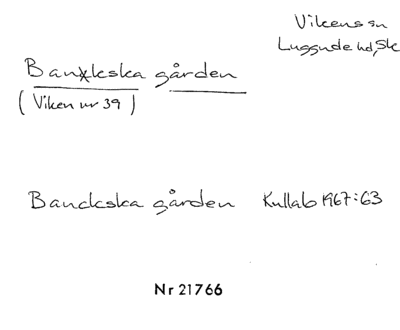 Vikens sn
Luggude hd, Sk
Banckska gården
(Viken nr 39)
Banckska gården Kullab 1967:63
Nr 21766